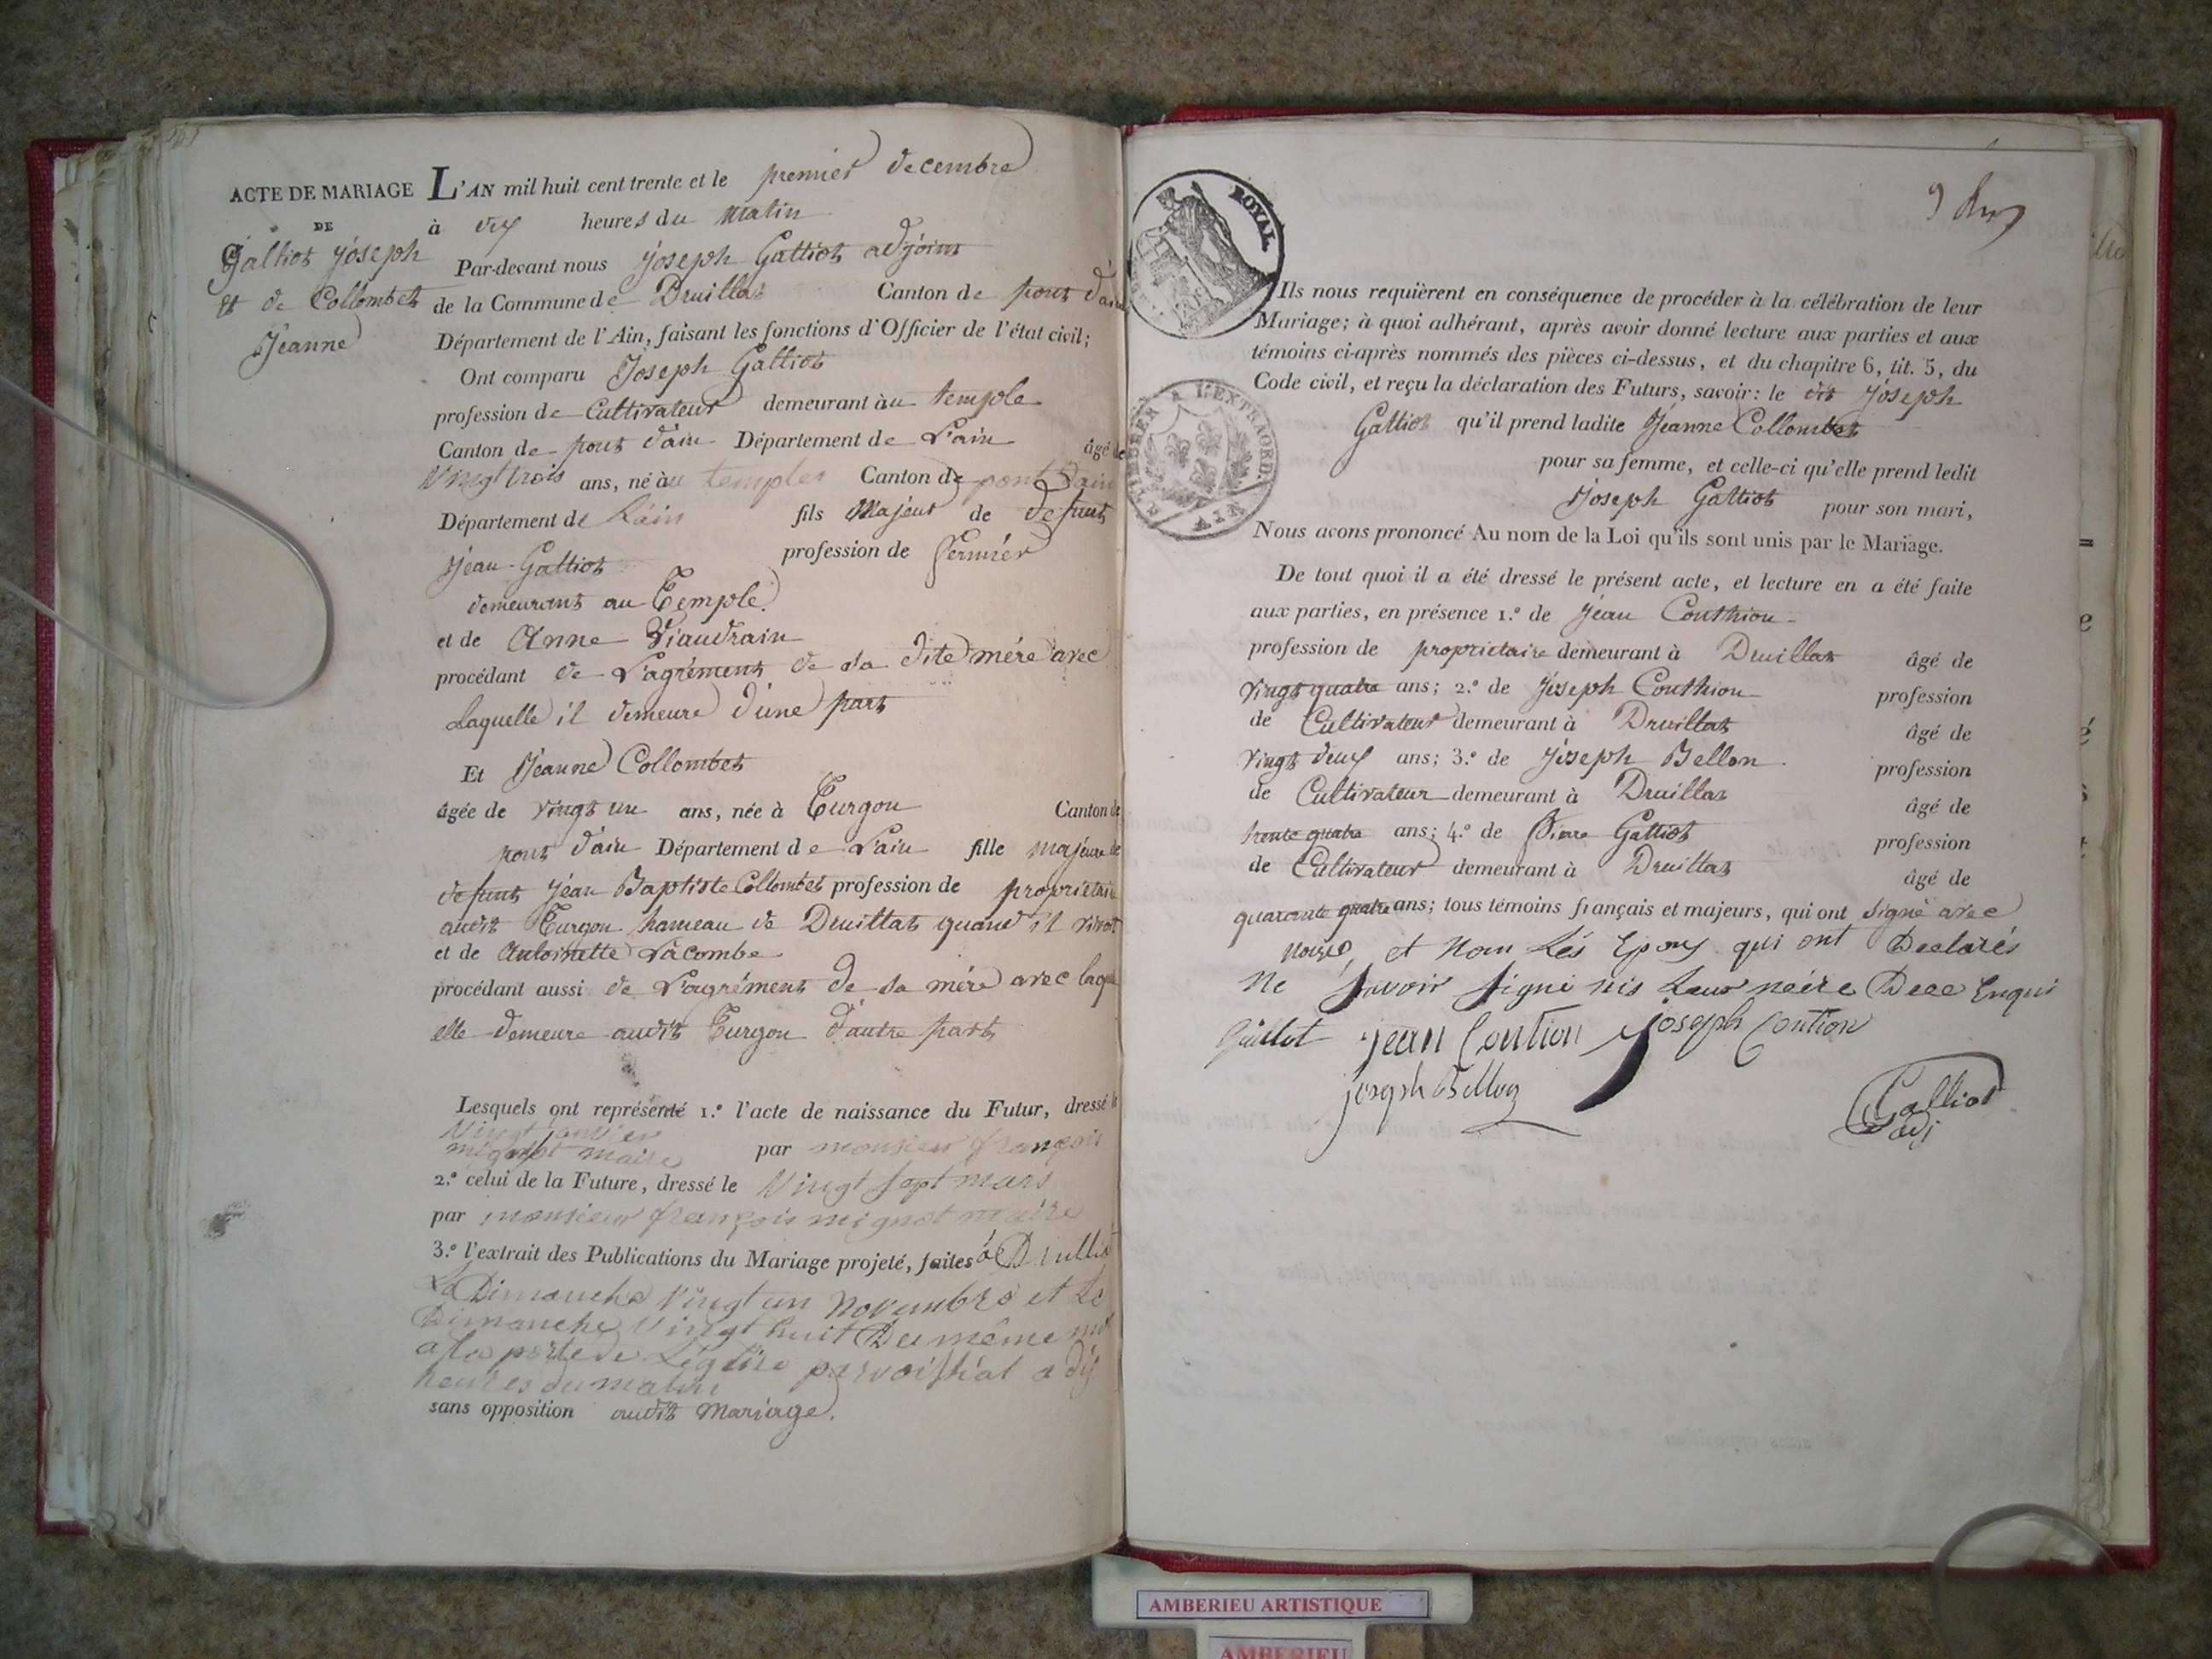 ACTE DE MARIAGE
DE
Galliot Joseph
et de Collombet
Jeanne
L'AN mil huit cent trente et le premier decembre
à dix heures du matin
Par-devant nous Joseph Galliot adjoint
de la Commune de Druillat Canton de pont d'ain
Département de l'Ain, faisant les fonctions d'Officier de l'état civil;
Ont comparu Joseph Galliot
profession de Cultivateur demeurant au temple
Canton de pont d'ain Département de L'ain âgé de
Vingt trois ans, né au temple Canton de pont d'ain
Département de L'ain fils Majeur de defunt
Jean Galliot profession de fermier
demeurant au Temple
et de Anne Viaudrain
procédant de L'agrément de sa dite mére avec
Laquelle il demeure d'une part
Et Jeanne Collombet
âgée de vingt un ans, née à Turgon Canton de
pont d'ain Département de L'ain fille majeure de
defunt Jean Baptiste Collombet profession de proprietaire
audit Turgon hameau de Druillat quand il vivoit
et de Antoinette Lacombe
procédant aussi de L'agrément de sa mére avec laqu
elle demeure audit Turgon d'autre part
Lesquels ont représenté 1.º l'acte de naissance du Futur, dressé le
Vingt janvier
mignot maire par monsieur françois
2.º celui de la Future, dressé le Vingt sept mars
par monsieur françois mignot maire
3.º l'extrait des Publications du Mariage projeté, faites à Druillat
Le Dimanche vingt un Novembre et Le
Dimanche Vingt huit Du même moi
a la porte de L'église parroissial a dix
heures du matin
sans opposition audit Mariage.
ROYAL
TIMBRE A L'EXTRAORD.
AIN
Ils nous requièrent en conséquence de procéder à la célébration de leur
Mariage; à quoi adhérant, après avoir donné lecture aux parties et aux
témoins ci-après nommés des pièces ci-dessus, et du chapitre 6, tit. 5, du
Code civil, et reçu la déclaration des Futurs, savoir: le dit Joseph
Galliot qu'il prend ladite Jeanne Collombet
pour sa femme, et celle-ci qu'elle prend ledit
Joseph Galliot pour son mari,
Nous avons prononcé Au nom de la Loi qu'ils sont unis par le Mariage.
De tout quoi il a été dressé le présent acte, et lecture en a été faite
aux parties, en présence 1.º de Jean Conthion
profession de proprietaire demeurant à Druillat âgé de
vingt quatre ans; 2.º de Joseph Conthion profession
de Cultivateur demeurant à Druillat âgé de
vingt deux ans; 3.º de Joseph Bellon profession
de Cultivateur demeurant à Druillat âgé de
trente quatre ans; 4.º de Pierre Galliot profession
de Cultivateur demeurant à Druillat âgé de
quarante quatre ans; tous témoins français et majeurs, qui ont signé avec
nous, et Non Les Epoux qui ont Declarés
Ne savoir signé nis Leur mère De ce Enquis
jean Contion joseph Contion
joseph Bellon
Galliot
adj
AMBERIEU ARTISTIQUE
AMBERIEU